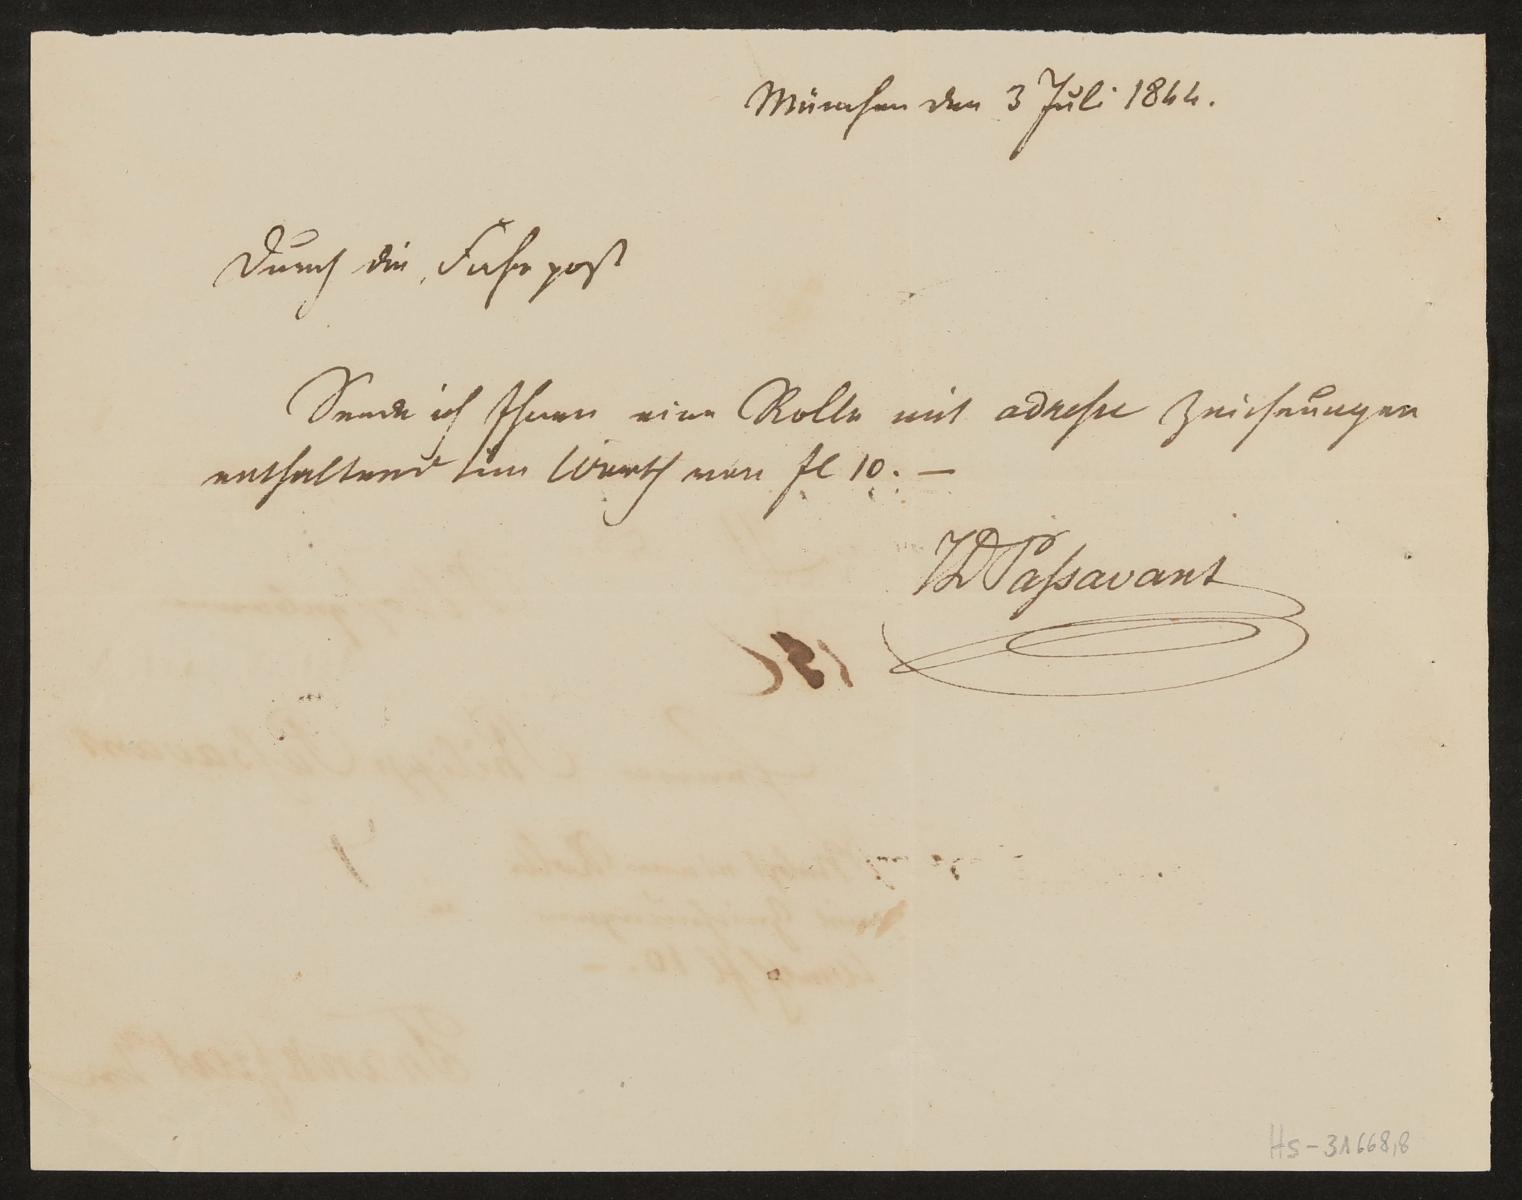 München den 3 Juli 1844.
Durch die Fahrpost
Sende ich Ihnen eine Rolle mit adresse Zeichnungen
enthaltend im Werth von fl 10. —
JD Passavant
Hs-31668,8